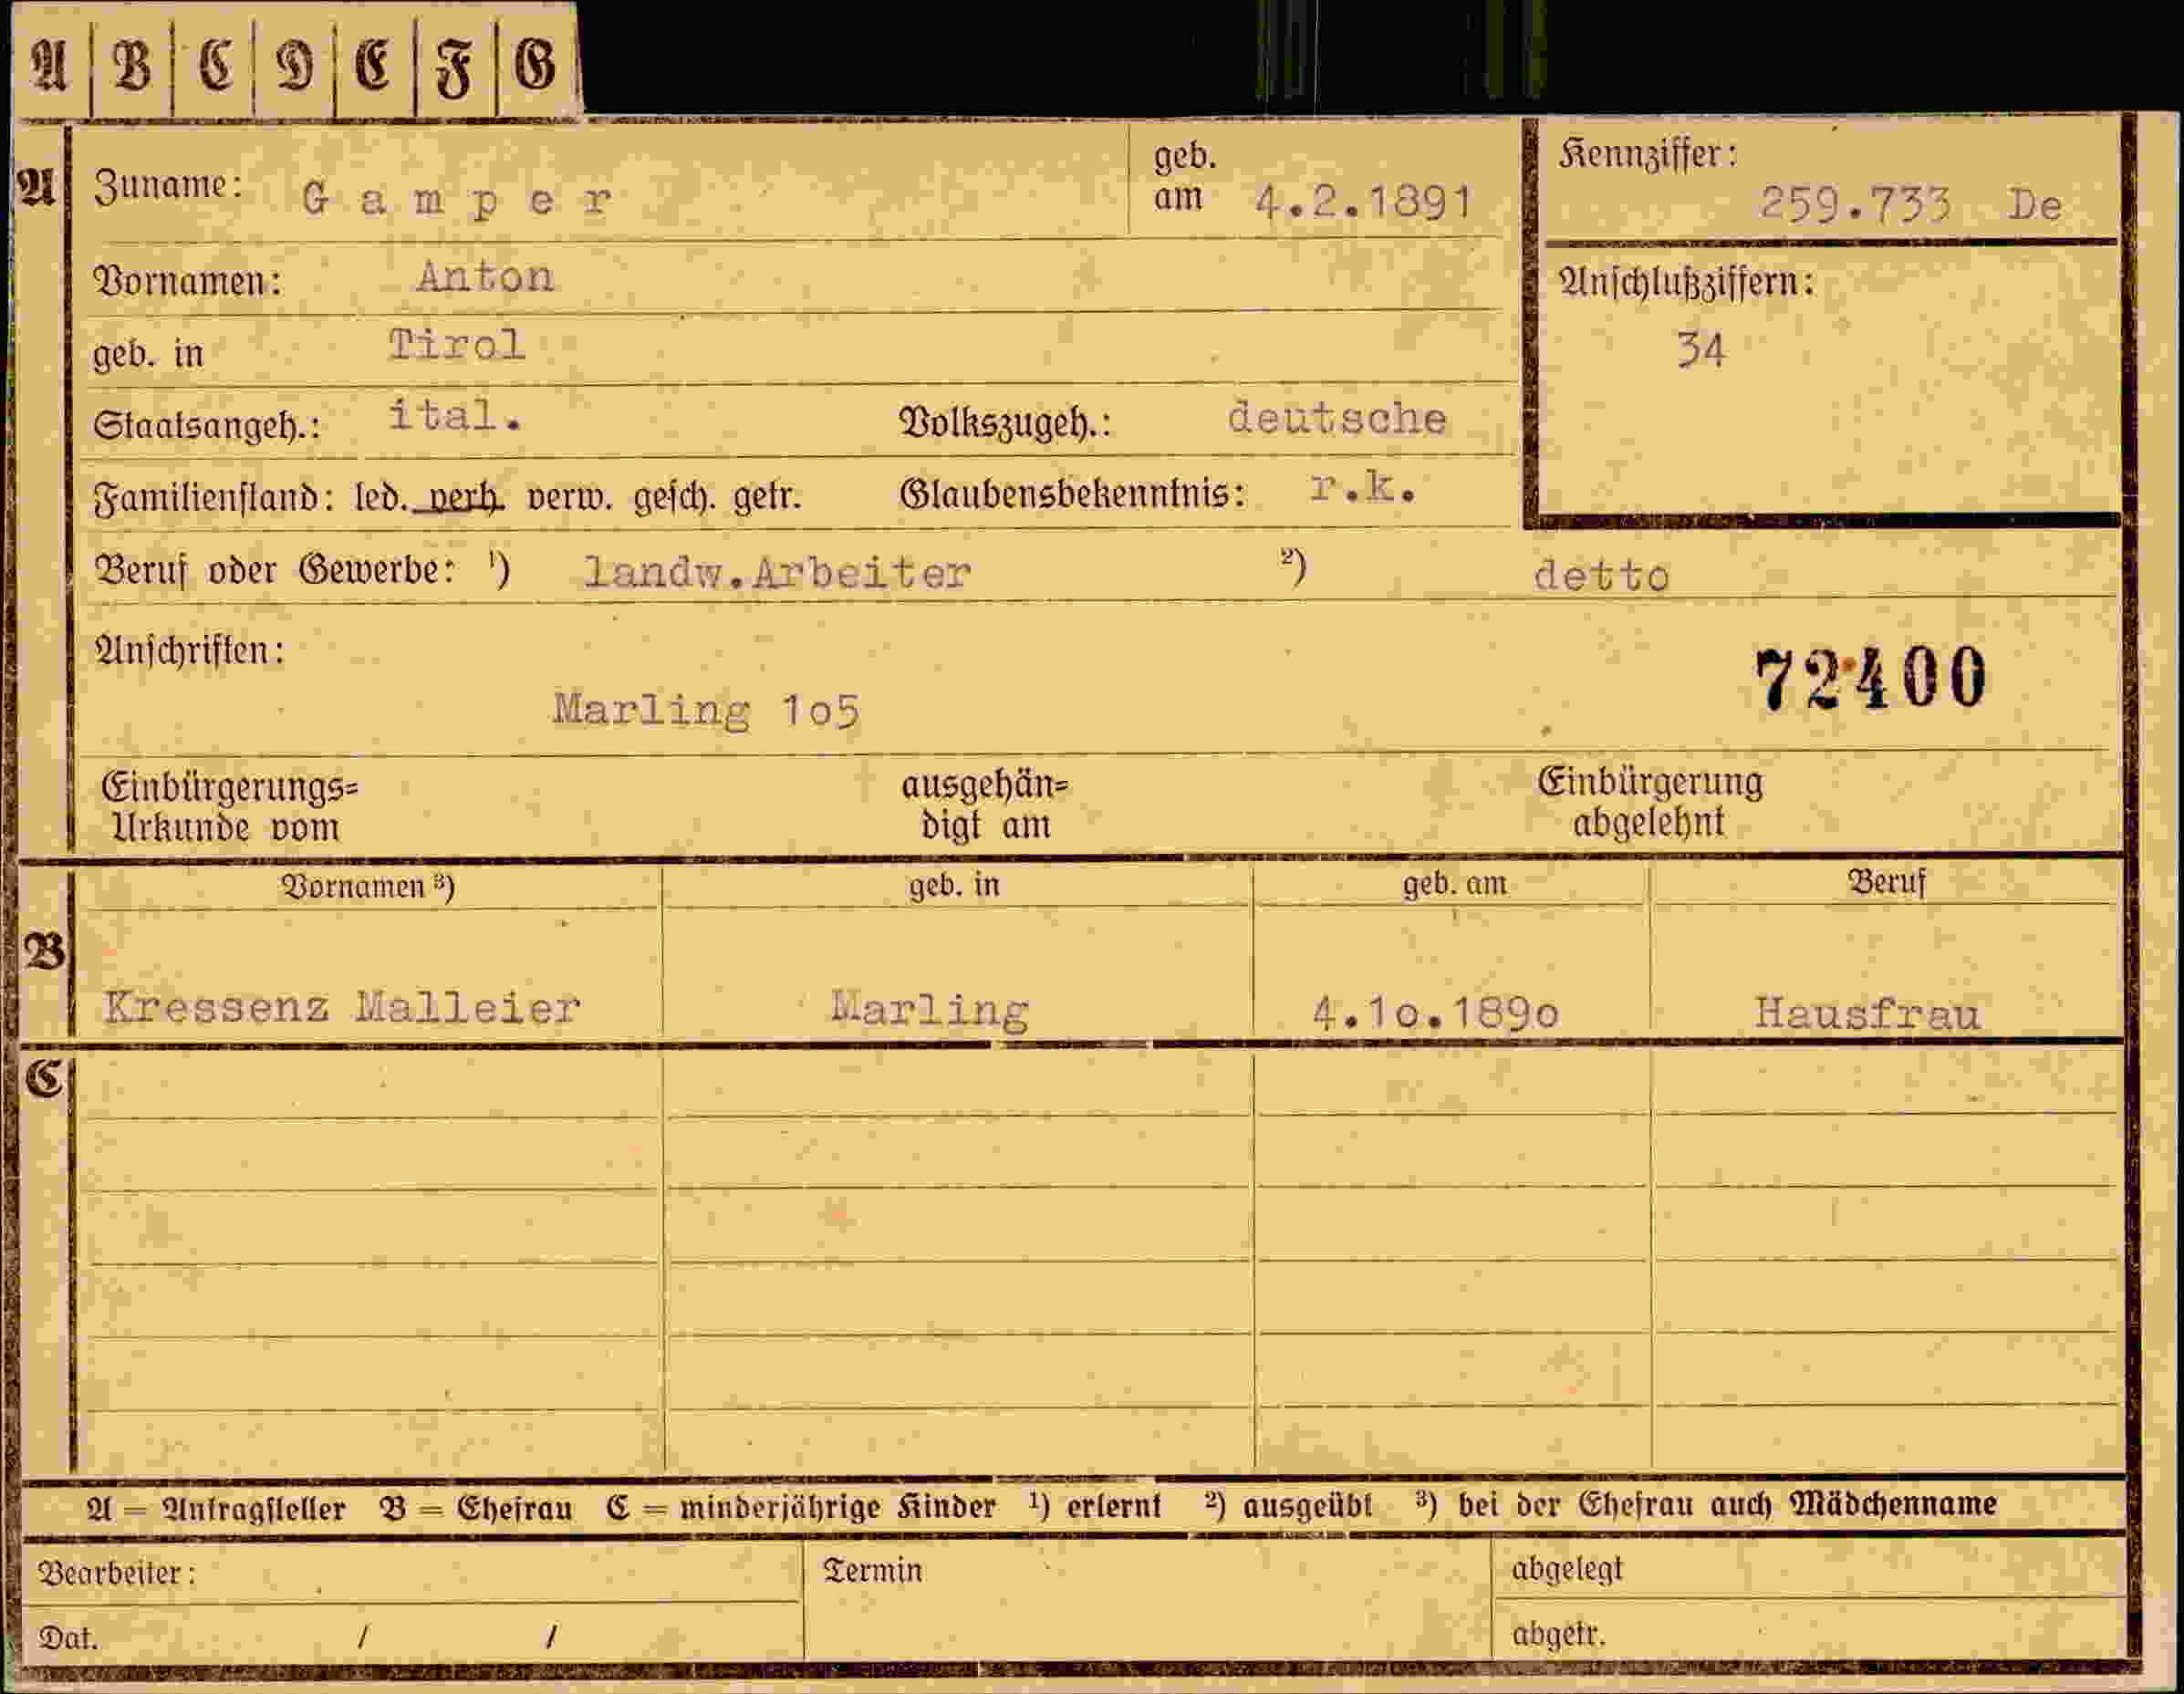 A B C D E F G
A Zuname: Gamper geb. am 4.2.1891 Kennziffer: 259.733 De
Vornamen: Anton Anschlußziffern:
geb. in Tirol 34
Staatsangeh.: ital. Volkszugeh.: deutsche
Familienstand: led. verh. verw. gesch. getr. Glaubensbekenntnis: r.k.
Beruf oder Gewerbe: ¹) landw.Arbeiter ²) detto
Anschriften: 72400
Marling 1o5
Einbürgerungs= ausgehän= Einbürgerung
Urkunde vom digt am abgelehnt
Vornamen ³) geb. in geb. am Beruf
B
Kressenz Malleier Marling 4.1o.189o Hausfrau
C
A = Antragsteller B = Ehefrau C = minderjährige Kinder ¹) erlernt ²) ausgeübt ³) bei der Ehefrau auch Mädchenname
Bearbeiter: Termin abgelegt
Dat. / / abgetr.